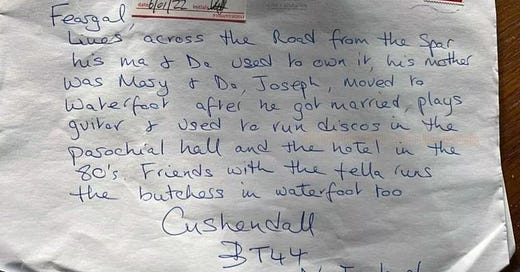 date 6/01/22 initial
Feargal,
Lives across the Road from the Spar
his ma & Da used to own it, his mother
was Mary & Da, Joseph, moved to
Waterfoot after he got married, plays
guitar & used to run discos in the
parochial hall and the hotel in the
80's. Friends with the fella runs
the butchers in waterfoot too
Cushendall
BT44